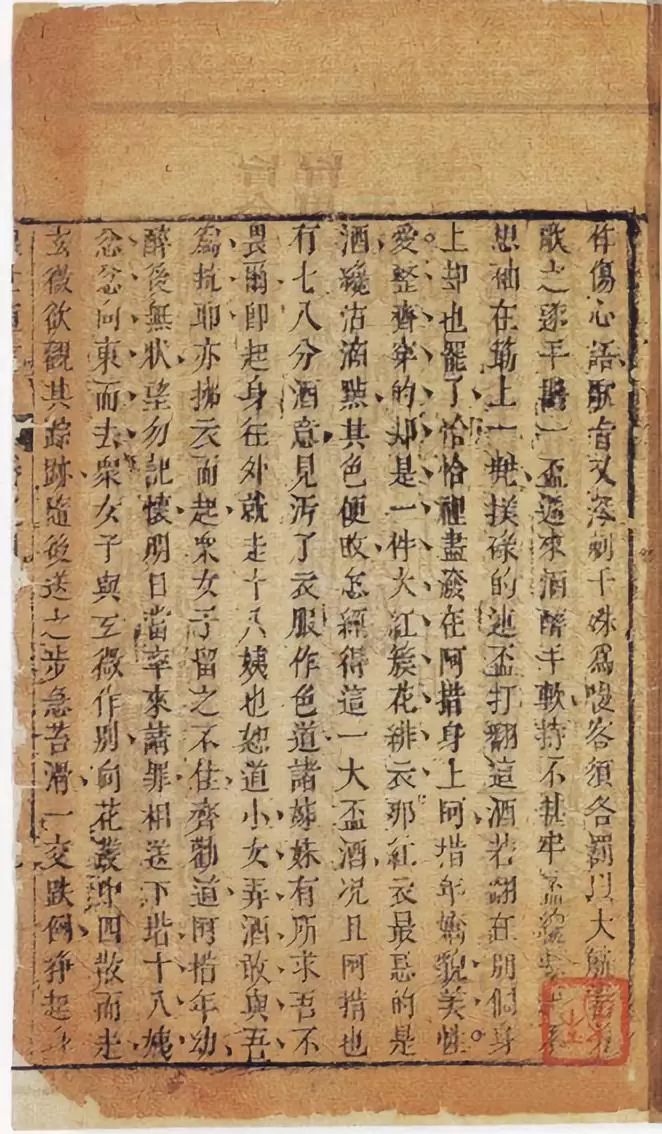 作傷心語歌旨又深刺于殊爲慢客須各罰以大觥當另
歌之遂手斟一盃遞來酒醉手軟持不甚牢
想袖在筯上一兜撲碌的連盃打翻這酒若翻在別個身
上却也罷了恰恰裡盡潑在阿措身上阿措年嬌貌美性
愛整齊穿的却是一件大紅簇花緋衣那紅衣最忌的是
酒纔沾滴點其色便敗怎經得這一大盃酒况且阿措也
有七八分酒意見汚了衣服作色道諸姊妹有所求吾不
畏爾即起身往外就走十八姨也怒道小女弄酒敢與吾
爲抗耶亦拂衣而起衆女子留之不住齊勸道阿措年幼
醉後無狀望勿記懷明日當率來請罪相送下堦十八姨
忿忿向東而去衆女子與玄微作別向花叢中四散而走
玄微欲觀其踪跡隨後送之步急苔滑一交跌倒掙起身